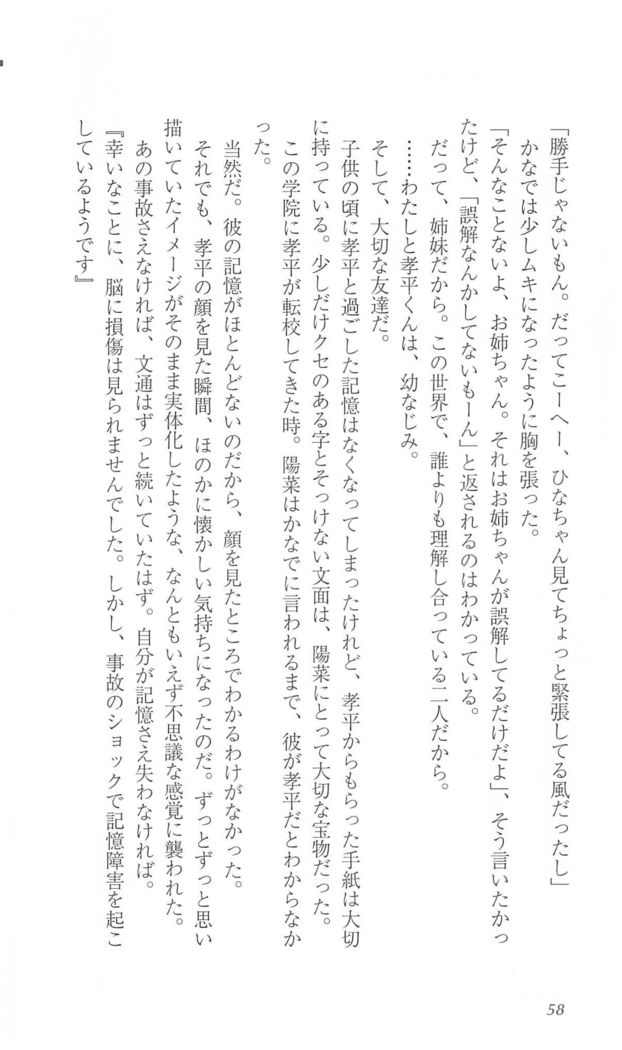 「勝手じゃないもん。だってこーへー、ひなちゃん見てちょっと緊張してる風だったし」
かなでは少しムキになったように胸を張った。
「そんなことないよ、お姉ちゃん。それはお姉ちゃんが誤解してるだけだよ」、そう言いたかっ
たけど、「誤解なんかしてないもーん」と返されるのはわかっている。
だって、姉妹だから。この世界で、誰よりも理解し合っている二人だから。
……わたしと孝平くんは、幼なじみ。
そして、大切な友達だ。
子供の頃に孝平と過ごした記憶はなくなってしまったけれど、孝平からもらった手紙は大切
に持っている。少しだけクセのある字とそっけない文面は、陽菜にとって大切な宝物だった。
この学院に孝平が転校してきた時。陽菜はかなでに言われるまで、彼が孝平だとわからなか
った。
当然だ。彼の記憶がほとんどないのだから、顔を見たところでわかるわけがなかった。
それでも、孝平の顔を見た瞬間、ほのかに懐かしい気持ちになったのだ。ずっとずっと思い
描いていたイメージがそのまま実体化したような、なんともいえず不思議な感覚に襲われた。
あの事故さえなければ、文通はずっと続いていたはず。自分が記憶さえ失わなければ。
『幸いなことに、脳に損傷は見られませんでした。しかし、事故のショックで記憶障害を起こ
しているようです』
58